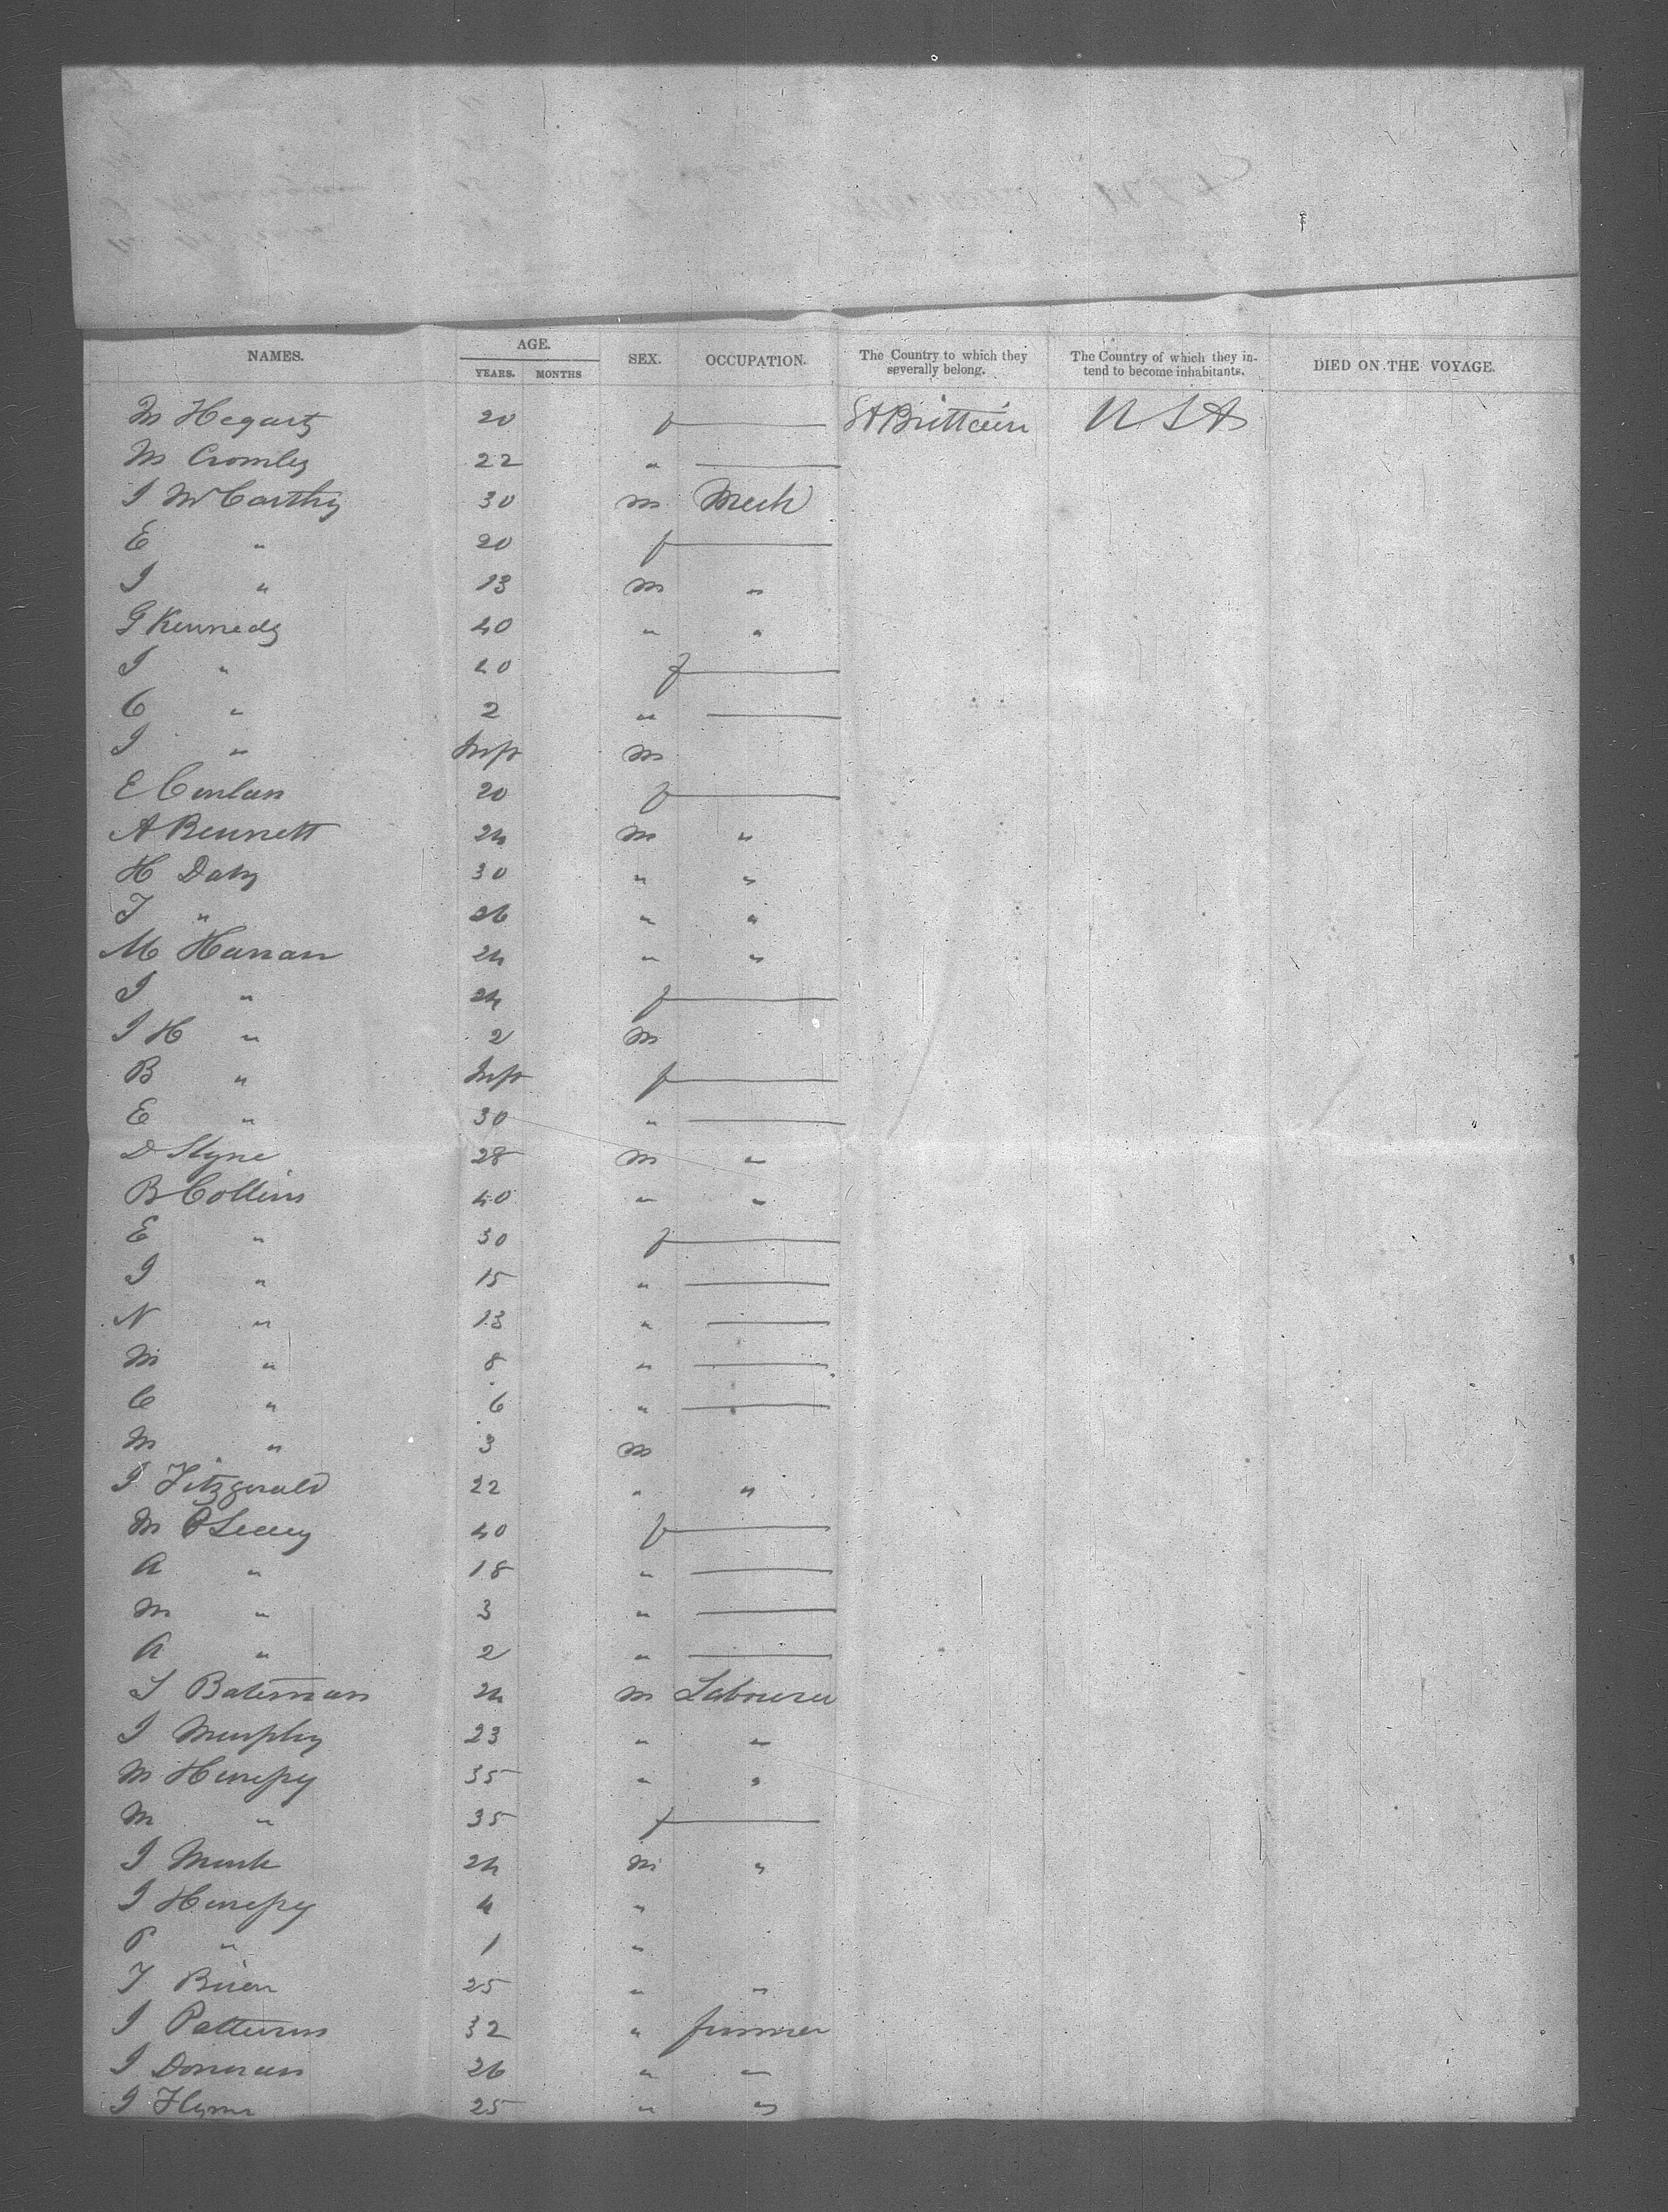 NAMES. AGE. YEARS. MONTHS SEX. OCCUPATION. The Country to which they severally belong. The Country of which they intend to become inhabitants. DIED ON THE VOYAGE.
M Hegarty 20 f — Gt Brittain U S A
M Cromley 22 " —
J McCarthy 30 m Mech
E " 20 f —
J " 13 m "
G Kennedy 40 " "
J " 20 f —
C " 2 " —
J " Inft m
E Conlan 20 f —
A Bennett 24 m "
H Daly 30 " "
T " 26 " "
M Hanan 24 " "
J " 24 f —
J H " 2 m
B " Inft f —
E " 30 " —
D Slyne 28 m "
B Collins 40 " "
E " 30 f —
J " 15 " —
N " 13 " —
M " 8 " —
C " 6 " —
M " 3 m
J Fitzgerald 22 " "
M 40 f —
A " 18 " —
M " 3 " —
A " 2 " —
J Bateman 24 m Labourer
J Murphy 23 " "
M 35 " "
M " 35 f —
J 24 m "
J 4 "
P " 1 "
T 25 " "
J 32 " farmer
J Donovan 26 " "
J Flynn 25 " "